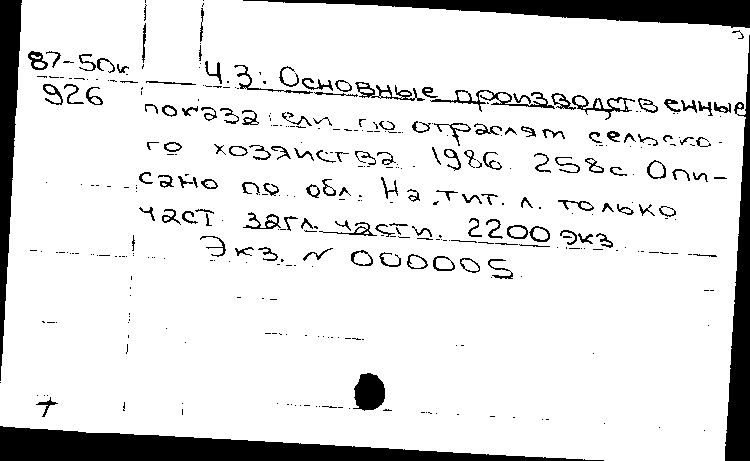 87-50к
926
Ч.3: Основные производственные
показатели по отраслям сельско-
го хозяйства. 1986. 258с. Опи-
сано по обл. На тит. л. только
част. загл. части. 2200 экз.
Экз. N 000005